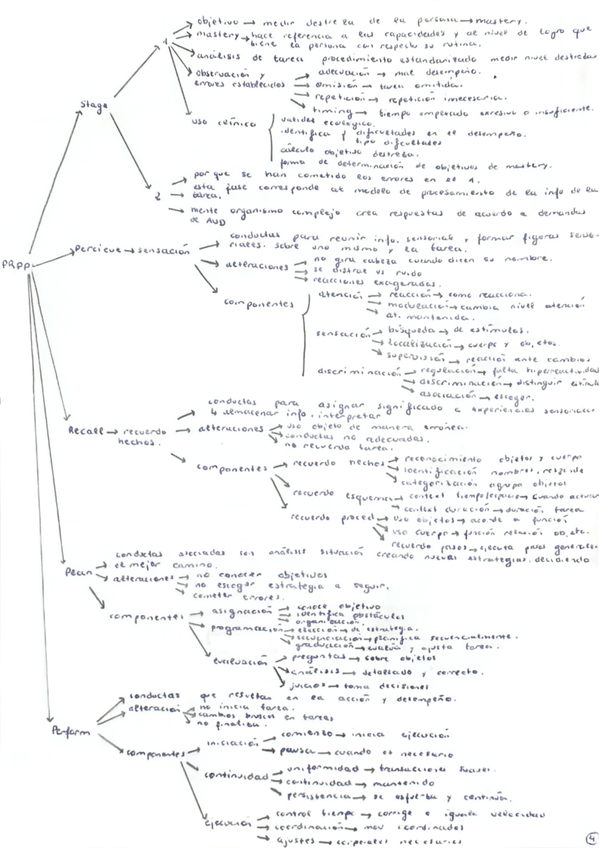 objetivo → medir destreza de la persona → mastery.
mastery → hace referencia a las capacidades y al nivel de logro que
tiene la persona con respecto su rutina.
1
análisis de tarea procedimiento estandarizado medir nivel destrezas
observación y → adecuación → mal desempeño.
errores establecidos → omisión → tarea omitida.
→ repetición → repetición innecesaria.
→ timing → tiempo empleado excesivo o insuficiente.
Stage
uso clínico validez ecológica.
identifica y dificultades en el desempeño.
tipo dificultades
cálculo objetivo destreza.
forma de determinación de objetivos de mastery.
por que se han cometido los errores en el 1.
2 → esta fase corresponde al modelo de procesamiento de la info de la
tarea.
mente organismo complejo crea respuestas de acuerdo a demandas
de AVD
PRPP
Percieve → sensación
conductas para reunir info. sensorial y formar figuras senso-
riales. sobre uno mismo y la tarea.
alteraciones → no gira cabeza cuando dicen su nombre.
→ se distrae vs ruido
→ reacciones exageradas.
componentes
atención → reacción → como reacciona.
→ modulación → cambia nivel atención
at. mantenida.
sensación → búsqueda → de estímulos.
→ localización → cuerpo y objetos.
→ supervisión → reacción ante cambios
discriminación → regulación → falta hiperactividad
→ discriminación → distinguir
→ asociación → escoger.
conductas para asignar significado a experiencias sensoriales
↳ almacenar info. interpretar
Recall → recuerdo
hechos.
alteraciones → uso objeto de manera errónea.
→ conductas no adecuadas.
no recuerdo tarea.
componentes → recuerdo hechos → reconocimiento objetos y cuerpo
→ identificación nombres,
→ categorización agrupa objetos
→ recuerdo esquema → context tiempo/espacio → cuando
→ context duración → duración tarea
→ recuerdo proced → uso objetos → acorde a función
→ uso cuerpo → función relación objetc.
recuerdo pasos → ejecuta pasos generales
conductas asociadas con análisis situación creando nuevas estrategias. decidiendo
Plan → el mejor camino.
alteraciones → no conocer objetivos
→ no escoger estrategia a seguir.
cometer errores.
componentes → asignación → conoce objetivo
→ identifica obstáculos
→ organización.
→ programación → elección → de estrategia.
→ secuenciación → planifica secuencialmente.
graduación → evalúa y ajusta tarea.
→ evaluación → preguntas → sobre objetos
→ análisis → detallado y correcto.
→ juicios → toma decisiones
Perform
conductas que resultan en la acción y desempeño.
alteración → no inicia tarea.
→ cambios bruscos en tareas
no finaliza.
componentes → iniciación → comienzo → inicia ejecución
→ pausa → cuando es necesario
→ continuidad → uniformidad → transacciones suaves.
→ continuidad → mantenido
→ persistencia → se esfuerza y continúa.
→ ejecución → control tiempo → corrige e iguala velocidad
→ coordinación → mov coordinados
→ ajustes → necesarios
4